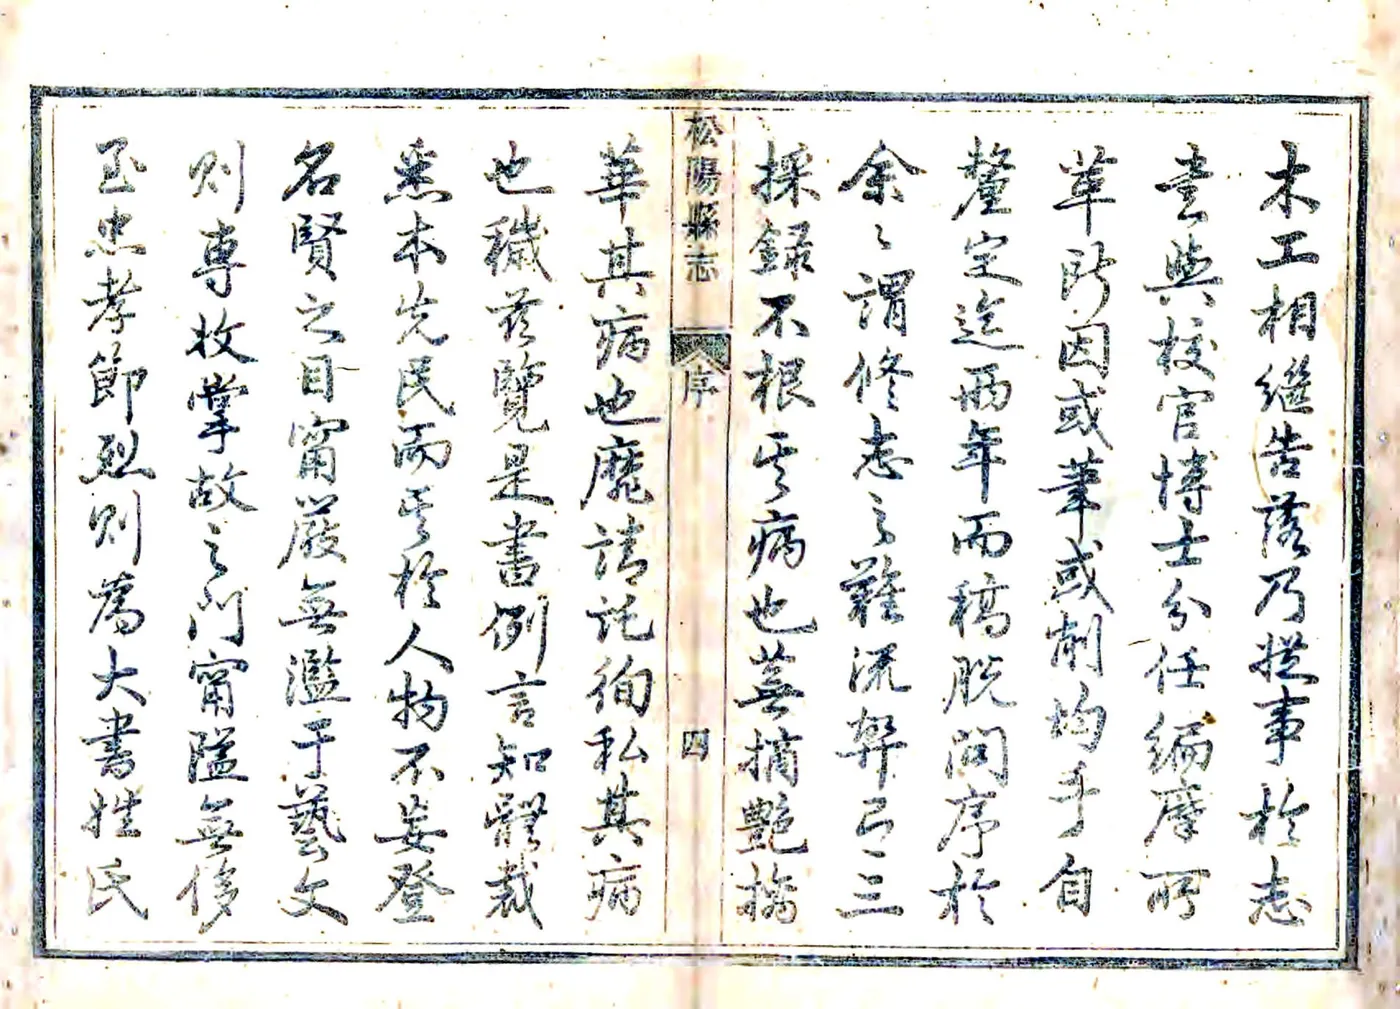 木工相繼告落乃從事於志
書與校官博士分任編摩所
革所因或筆或削均手自
釐定迄兩年而稿脫問序於
余余謂修志之難流弊有三
採錄不根其病也蕪摘艷摛
松陽縣志
序
四
華其病也靡請託徇私其病
也穢茲覽是書例言知體裁
悉本先民而其於人物不妄登
名賢之目甯嚴無濫于藝文
則專收掌故之門甯隘無侈
至忠孝節烈則為大書姓氏